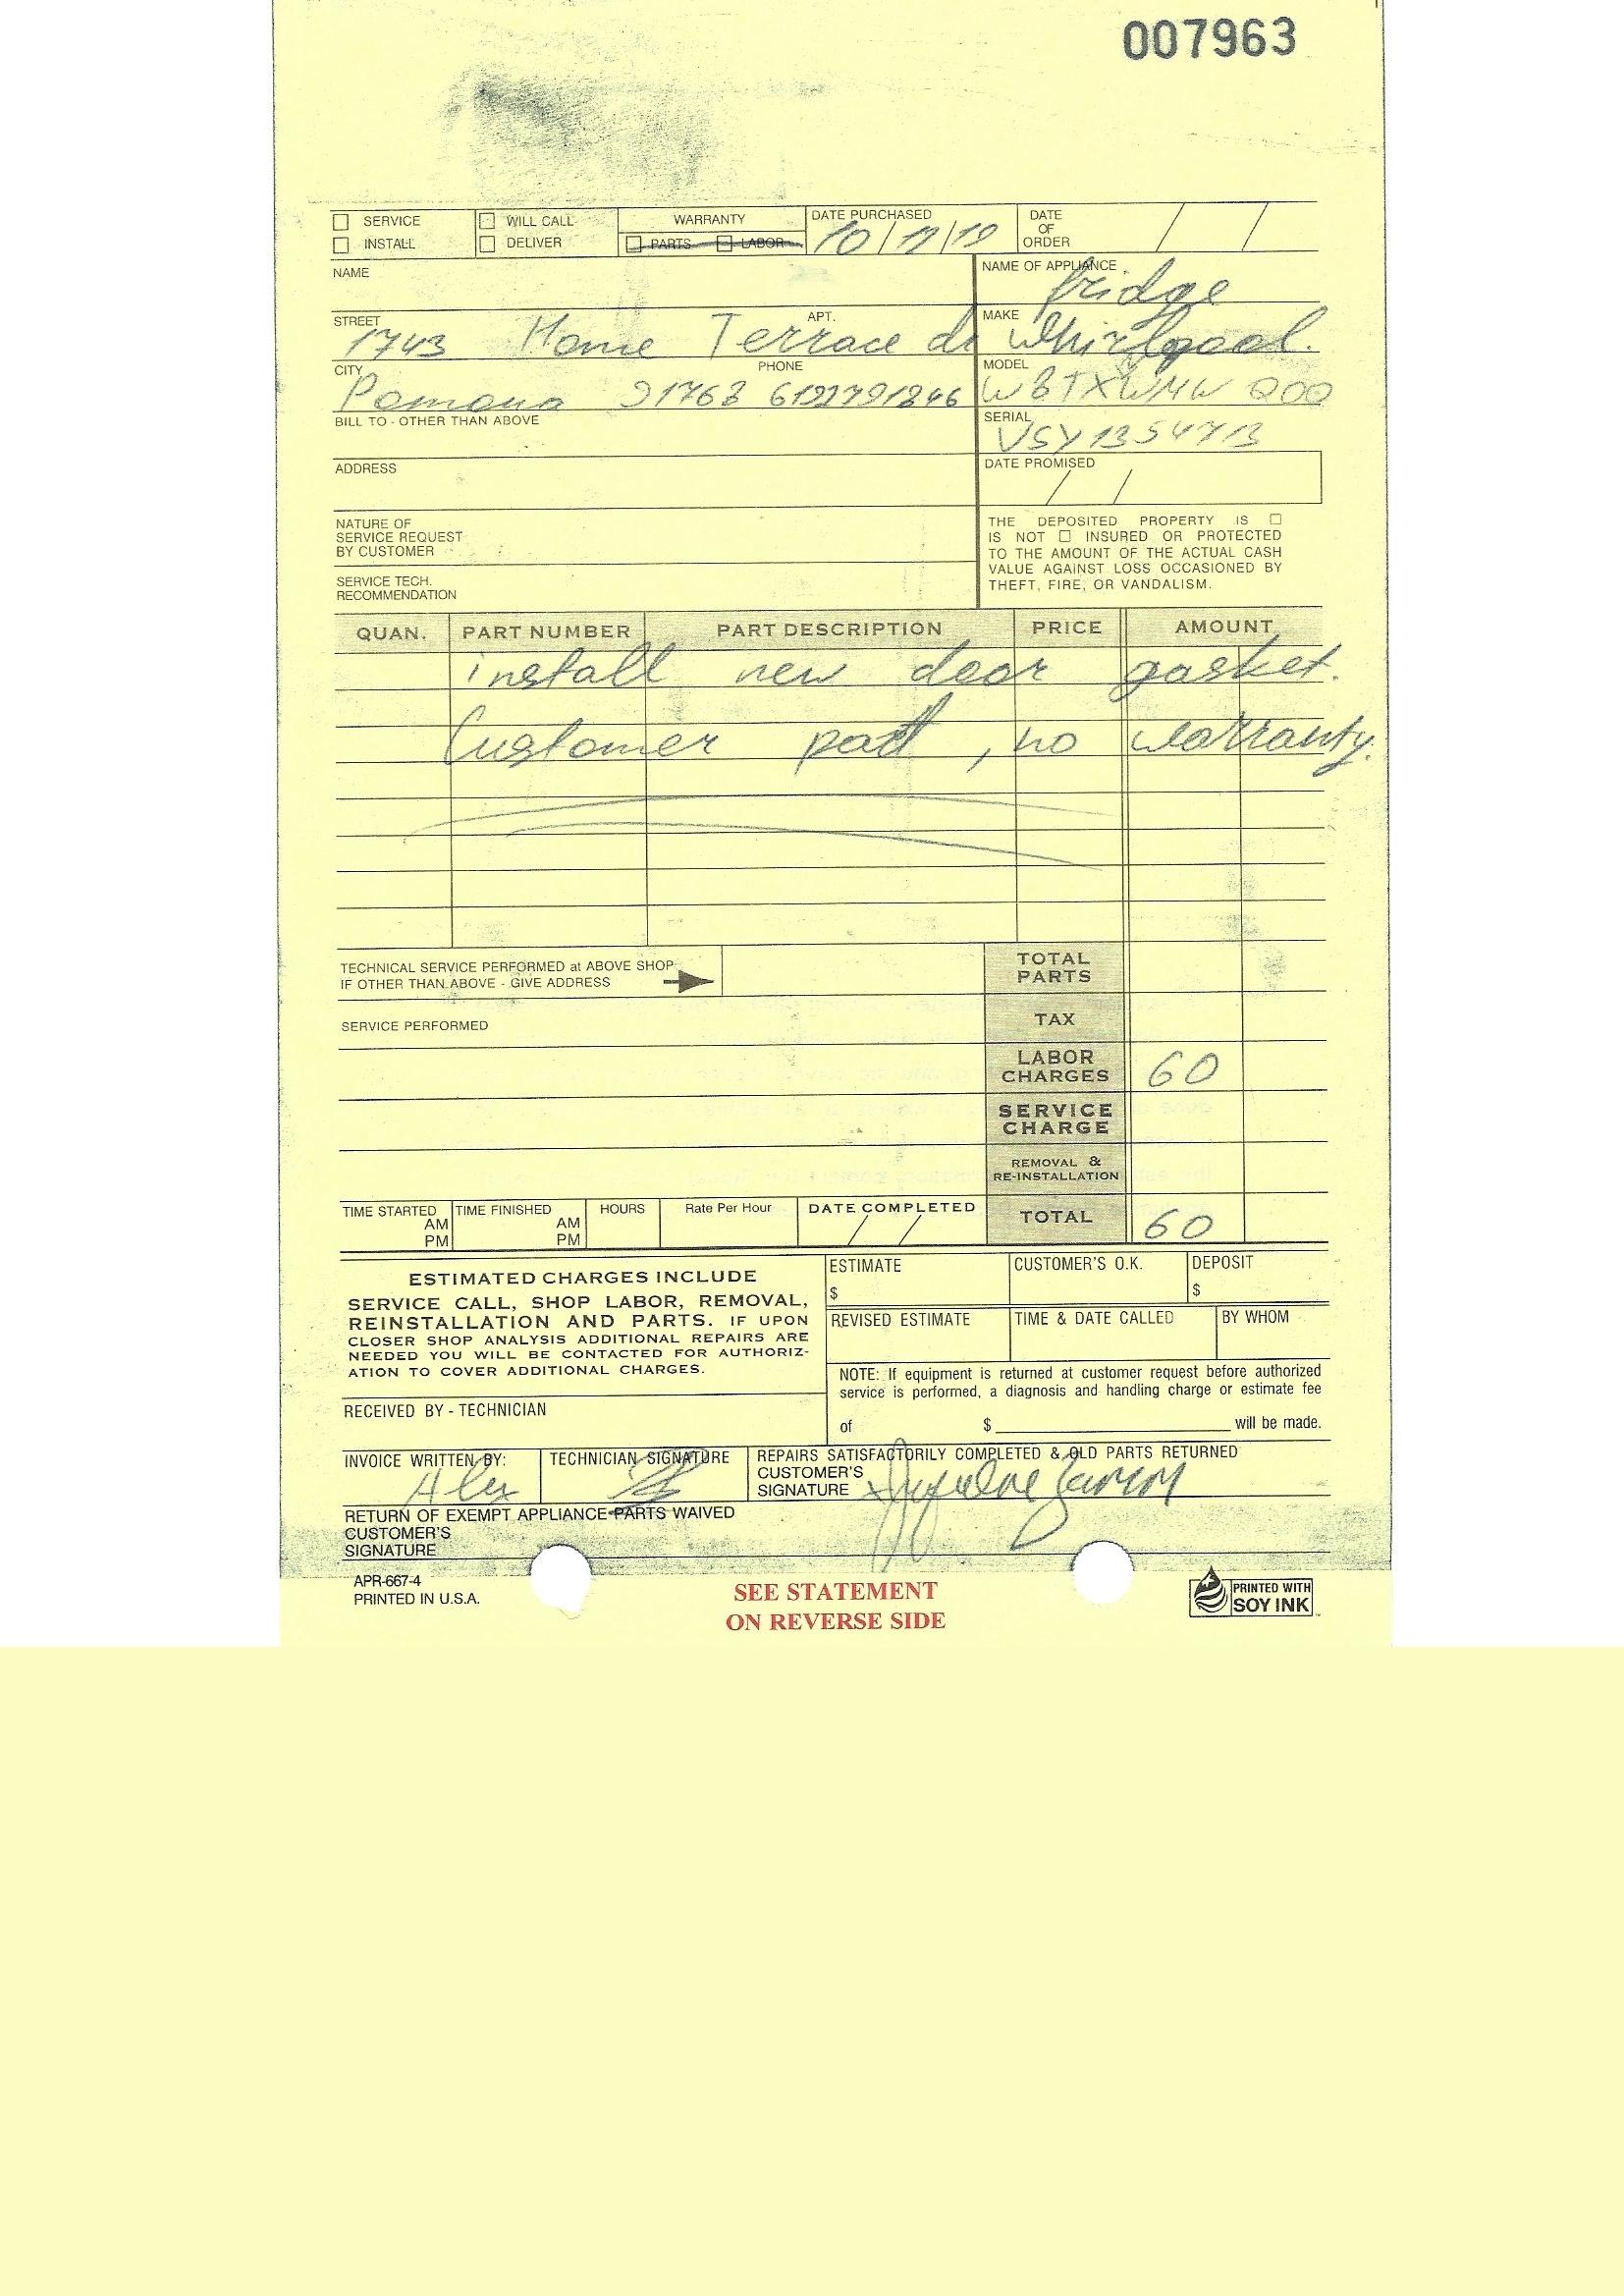 007963
SERVICE WILL CALL WARRANTY DATE PURCHASED DATE OF ORDER
INSTALL DELIVER PARTS LABOR 10/17/19
NAME NAME OF APPLIANCE
fridge
STREET APT. MAKE
1743 Home Terrace dr Whirlpool.
CITY PHONE MODEL
Pomona 91768
BILL TO - OTHER THAN ABOVE SERIAL
VSY1354713
ADDRESS DATE PROMISED
NATURE OF
SERVICE REQUEST
BY CUSTOMER
THE DEPOSITED PROPERTY IS
IS NOT INSURED OR PROTECTED
TO THE AMOUNT OF THE ACTUAL CASH
VALUE AGAINST LOSS OCCASIONED BY
THEFT, FIRE, OR VANDALISM.
SERVICE TECH.
RECOMMENDATION
QUAN. PART NUMBER PART DESCRIPTION PRICE AMOUNT
install new door gasket.
Customer part, no warranty.
TECHNICAL SERVICE PERFORMED at ABOVE SHOP
IF OTHER THAN ABOVE - GIVE ADDRESS
TOTAL PARTS
SERVICE PERFORMED TAX
LABOR CHARGES 60
SERVICE CHARGE
REMOVAL & RE-INSTALLATION
TIME STARTED AM PM TIME FINISHED AM PM HOURS Rate Per Hour DATE COMPLETED TOTAL 60
ESTIMATED CHARGES INCLUDE
SERVICE CALL, SHOP LABOR, REMOVAL,
REINSTALLATION AND PARTS. IF UPON
CLOSER SHOP ANALYSIS ADDITIONAL REPAIRS ARE
NEEDED YOU WILL BE CONTACTED FOR AUTHORIZ-
ATION TO COVER ADDITIONAL CHARGES.
ESTIMATE $ CUSTOMER'S O.K. DEPOSIT $
REVISED ESTIMATE TIME & DATE CALLED BY WHOM
NOTE: If equipment is returned at customer request before authorized
service is performed, a diagnosis and handling charge or estimate fee
of $ will be made.
RECEIVED BY - TECHNICIAN
INVOICE WRITTEN BY: TECHNICIAN SIGNATURE REPAIRS SATISFACTORILY COMPLETED & OLD PARTS RETURNED
Alex CUSTOMER'S
SIGNATURE
RETURN OF EXEMPT APPLIANCE PARTS WAIVED
CUSTOMER'S
SIGNATURE
APR-667-4
PRINTED IN U.S.A.
SEE STATEMENT
ON REVERSE SIDE
PRINTED WITH
SOY INK